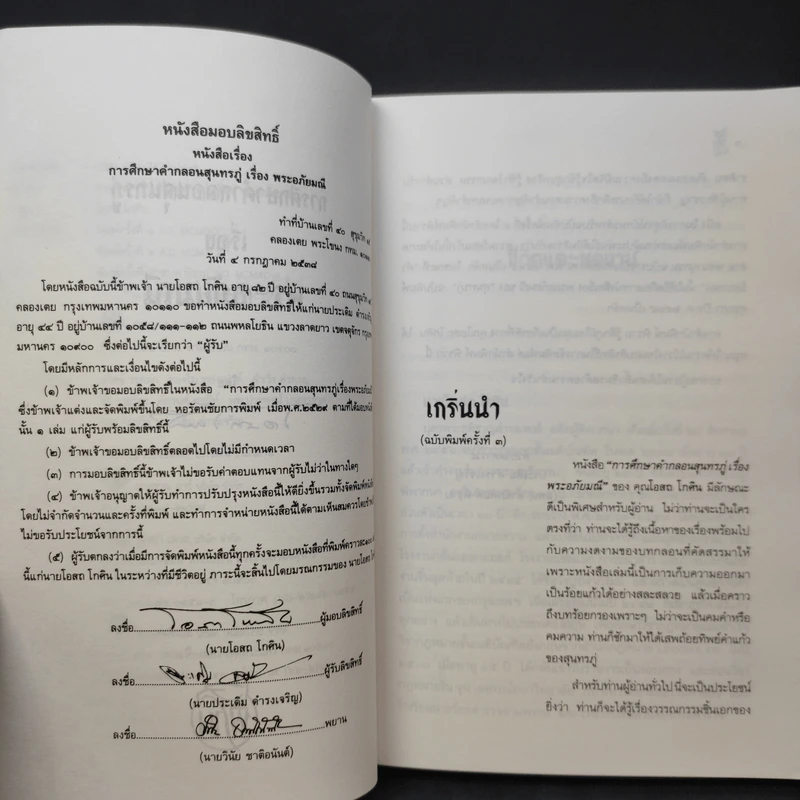 หนังสือมอบลิขสิทธิ์
หนังสือเรื่อง
การศึกษาคำกลอนสุนทรภู่ เรื่อง พระอภัยมณี
ทำที่บ้านเลขที่ ๔๐
คลองเตย พระโขนง กทม.
วันที่ ๔ กรกฎาคม ๒๕๓๘
โดยหนังสือฉบับนี้ข้าพเจ้า นายโอสถ โกศิน อายุ ๘๒ ปี อยู่บ้านเลขที่ ๔๐ ถนนสุขุมวิท
คลองเตย กรุงเทพมหานคร ๑๐๑๑๐ ขอทำหนังสือมอบลิขสิทธิ์ให้แก่นายประเดิม
อายุ ๔๔ ปี อยู่บ้านเลขที่ ๑๐๕๘/๑๑๑-๑๑๒ ถนนพหลโยธิน แขวงลาดยาว เขตจตุจักร
มหานคร ๑๐๙๐๐ ซึ่งต่อไปนี้จะเรียกว่า "ผู้รับ"
โดยมีหลักการและเงื่อนไขดังต่อไปนี้
(๑) ข้าพเจ้าขอมอบลิขสิทธิ์ในหนังสือ "การศึกษาคำกลอนสุนทรภู่เรื่องพระอภัยมณี
ซึ่งข้าพเจ้าแต่งและจัดพิมพ์ขึ้นโดย หอรัตนชัยการพิมพ์ เมื่อพ.ศ.๒๕๒๙ ตามที่ได้มอบ
นั้น ๑ เล่ม แก่ผู้รับพร้อมลิขสิทธิ์นี้
(๒) ข้าพเจ้าขอมอบลิขสิทธิ์ตลอดไปโดยไม่มีกำหนดเวลา
(๓) การมอบลิขสิทธิ์นี้ข้าพเจ้าไม่ขอรับค่าตอบแทนจากผู้รับไม่ว่าในทางใดๆ
(๔) ข้าพเจ้าอนุญาตให้ผู้รับทำการปรับปรุงหนังสือนี้ให้ดียิ่งขึ้นรวมทั้งจัดพิมพ์
โดยไม่จำกัดจำนวนและครั้งที่พิมพ์ และทำการจำหน่ายหนังสือนี้ได้ตามเห็นสมควร
ไม่ขอรับประโยชน์จากการนี้
(๕) ผู้รับตกลงว่าเมื่อมีการจัดพิมพ์หนังสือนี้ทุกครั้งจะมอบหนังสือที่พิมพ์คราวละ
นี้แก่นายโอสถ โกศิน ในระหว่างที่มีชีวิตอยู่ ภาระนี้จะสิ้นไปโดยมรณกรรมของ นายโอสถ
ลงชื่อ ผู้มอบลิขสิทธิ์
(นายโอสถ โกศิน)
ลงชื่อ ผู้รับลิขสิทธิ์
(นายประเดิม ดำรงเจริญ)
ลงชื่อ พยาน
(นายวินัย ชาติอนันต์)
เกริ่นนำ
(ฉบับพิมพ์ครั้งที่ ๓)
หนังสือ "การศึกษาคำกลอนสุนทรภู่ เรื่อง
พระอภัยมณี" ของ คุณโอสถ โกศิน มีลักษณะ
ดีเป็นพิเศษสำหรับผู้อ่าน ไม่ว่าท่านจะเป็นใคร
ตรงที่ว่า ท่านจะได้รู้ถึงเนื้อหาของเรื่องพร้อมไป
กับความงดงามของบทกลอนที่คัดสรรมาให้
เพราะหนังสือเล่มนี้เป็นการเก็บความออกมา
เป็นร้อยแก้วได้อย่างสละสลวย แล้วเมื่อคราว
ถึงบทร้อยกรองเพราะๆ ไม่ว่าจะเป็นคมคำหรือ
คมความ ท่านก็ชักมาให้ได้เสพถ้อยทิพย์คำแก้ว
ของสุนทรภู่
สำหรับท่านผู้อ่านทั่วไป นี่จะเป็นประโยชน์
ยิ่งว่า ท่านก็จะได้รู้เรื่องวรรณกรรมชิ้นเอกของ